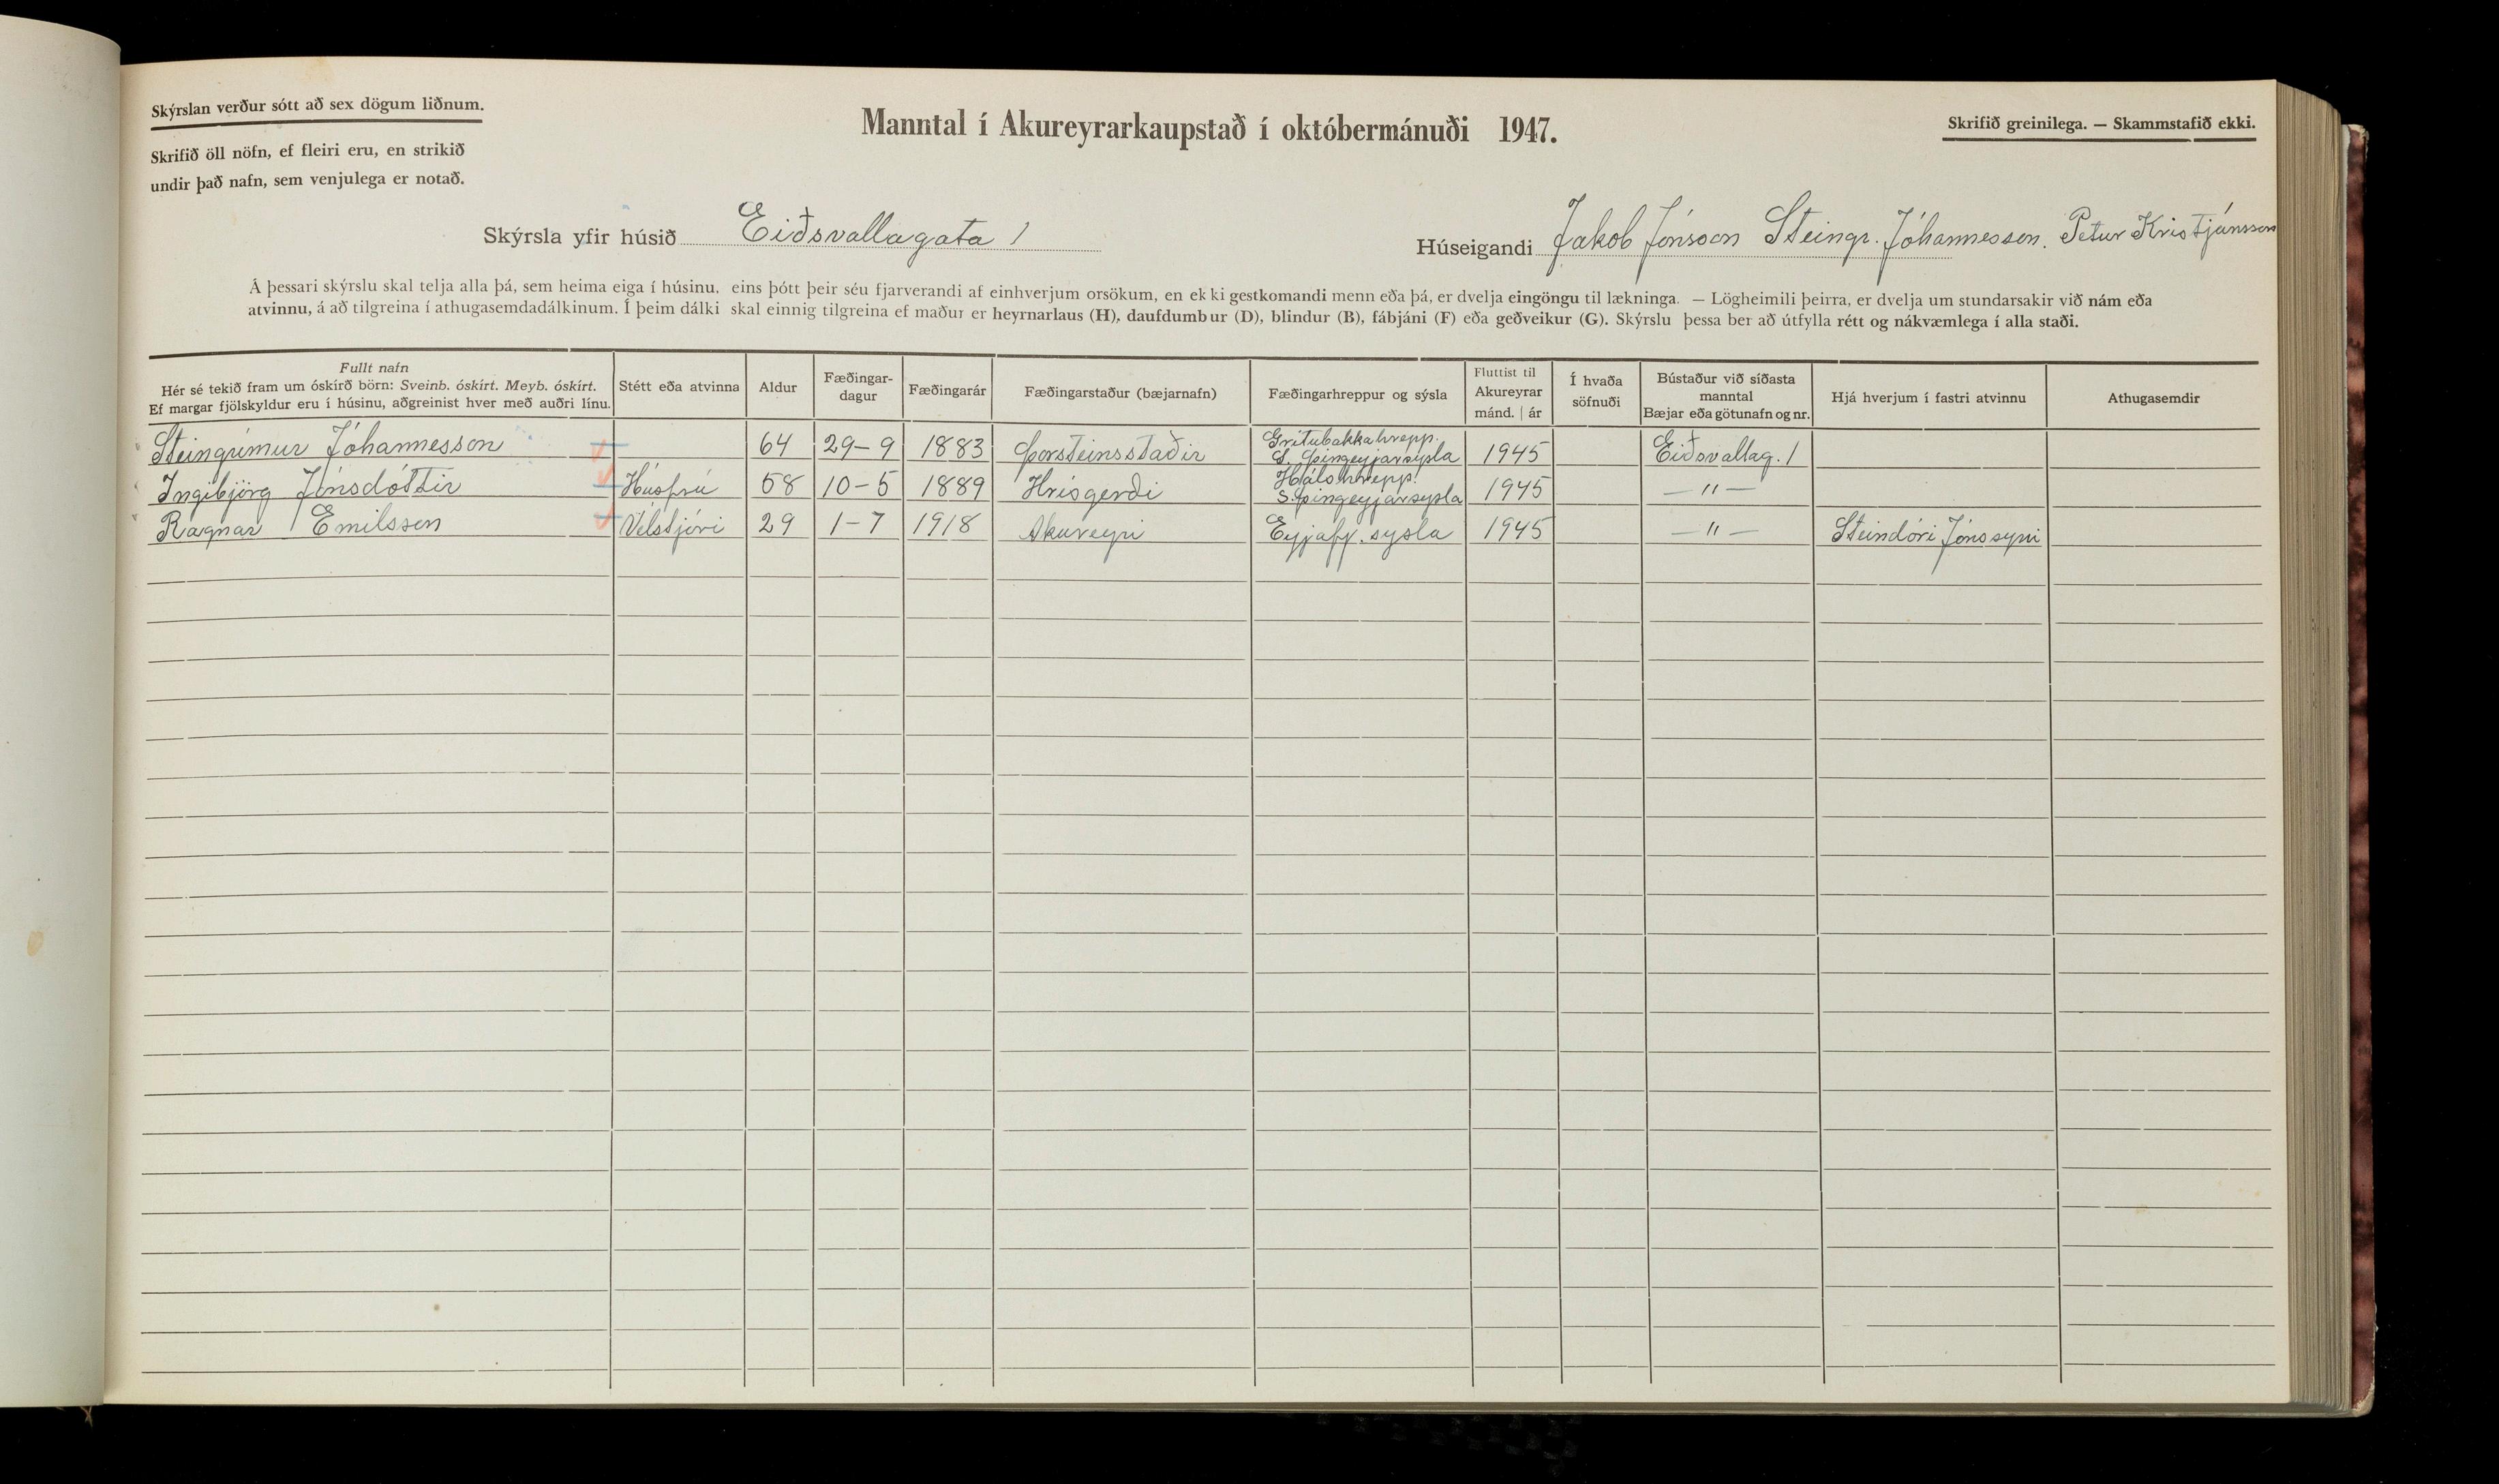 Skýrslan verður sótt að sex dögum liðnum.
Skrifið öll nöfn, ef fleiri eru, en strikið
undir það nafn, sem venjulega er notað.
Manntal í Akureyrarkaupstað í októbermánuði 1947.
Skrifið greinilega. — Skammstafið ekki.
Skýrsla yfir húsið Eiðsvallagata 1
Húseigandi Jakob Jónsson Steingr. Jóhannesson. Petur Kristjánsson
Á þessari skýrslu skal telja alla þá, sem heima eiga í húsinu, eins þótt þeir séu fjarverandi af einhverjum orsökum, en ekki gestkomandi menn eða þá, er dvelja eingöngu til lækninga. — Lögheimili þeirra, er dvelja um stundarsakir við nám eða
atvinnu, á að tilgreina í athugasemdadálkinum. Í þeim dálki skal einnig tilgreina ef maður er heyrnarlaus (H), daufdumbur (D), blindur (B), fábjáni (F) eða geðveikur (G). Skýrslu þessa ber að útfylla rétt og nákvæmlega í alla staði.
Fullt nafn
Hér sé tekið fram um óskírð börn: Sveinb. óskírt. Meyb. óskírt.
Ef margar fjölskyldur eru í húsinu, aðgreinist hver með auðri línu.
Stétt eða atvinna
Aldur
Fæðingar-
dagur
Fæðingarár
Fæðingarstaður (bæjarnafn)
Fæðingarhreppur og sýsla
Fluttist til
Akureyrar
mánd. | ár
Í hvaða
söfnuði
Bústaður við síðasta
manntal
Bæjar eða götunafn og nr.
Hjá hverjum í fastri atvinnu
Athugasemdir
Steingrímur Jóhannesson 64 29-9 1883 Þorsteinsstaðir Grítubakkahrepp. S. Þingeyjarsýsla 1945 Eiðsvallag. 1
Ingibjörg Jónsdóttir Húsfrú 58 10-5 1889 Hrísgerði Hálshrepp. S. Þingeyjarsýsla 1945 — " —
Ragnar Emilsson Vélstjóri 29 1-7 1918 Akureyri Eyjafj. sýsla 1945 — " — Steindóri Jónssyni